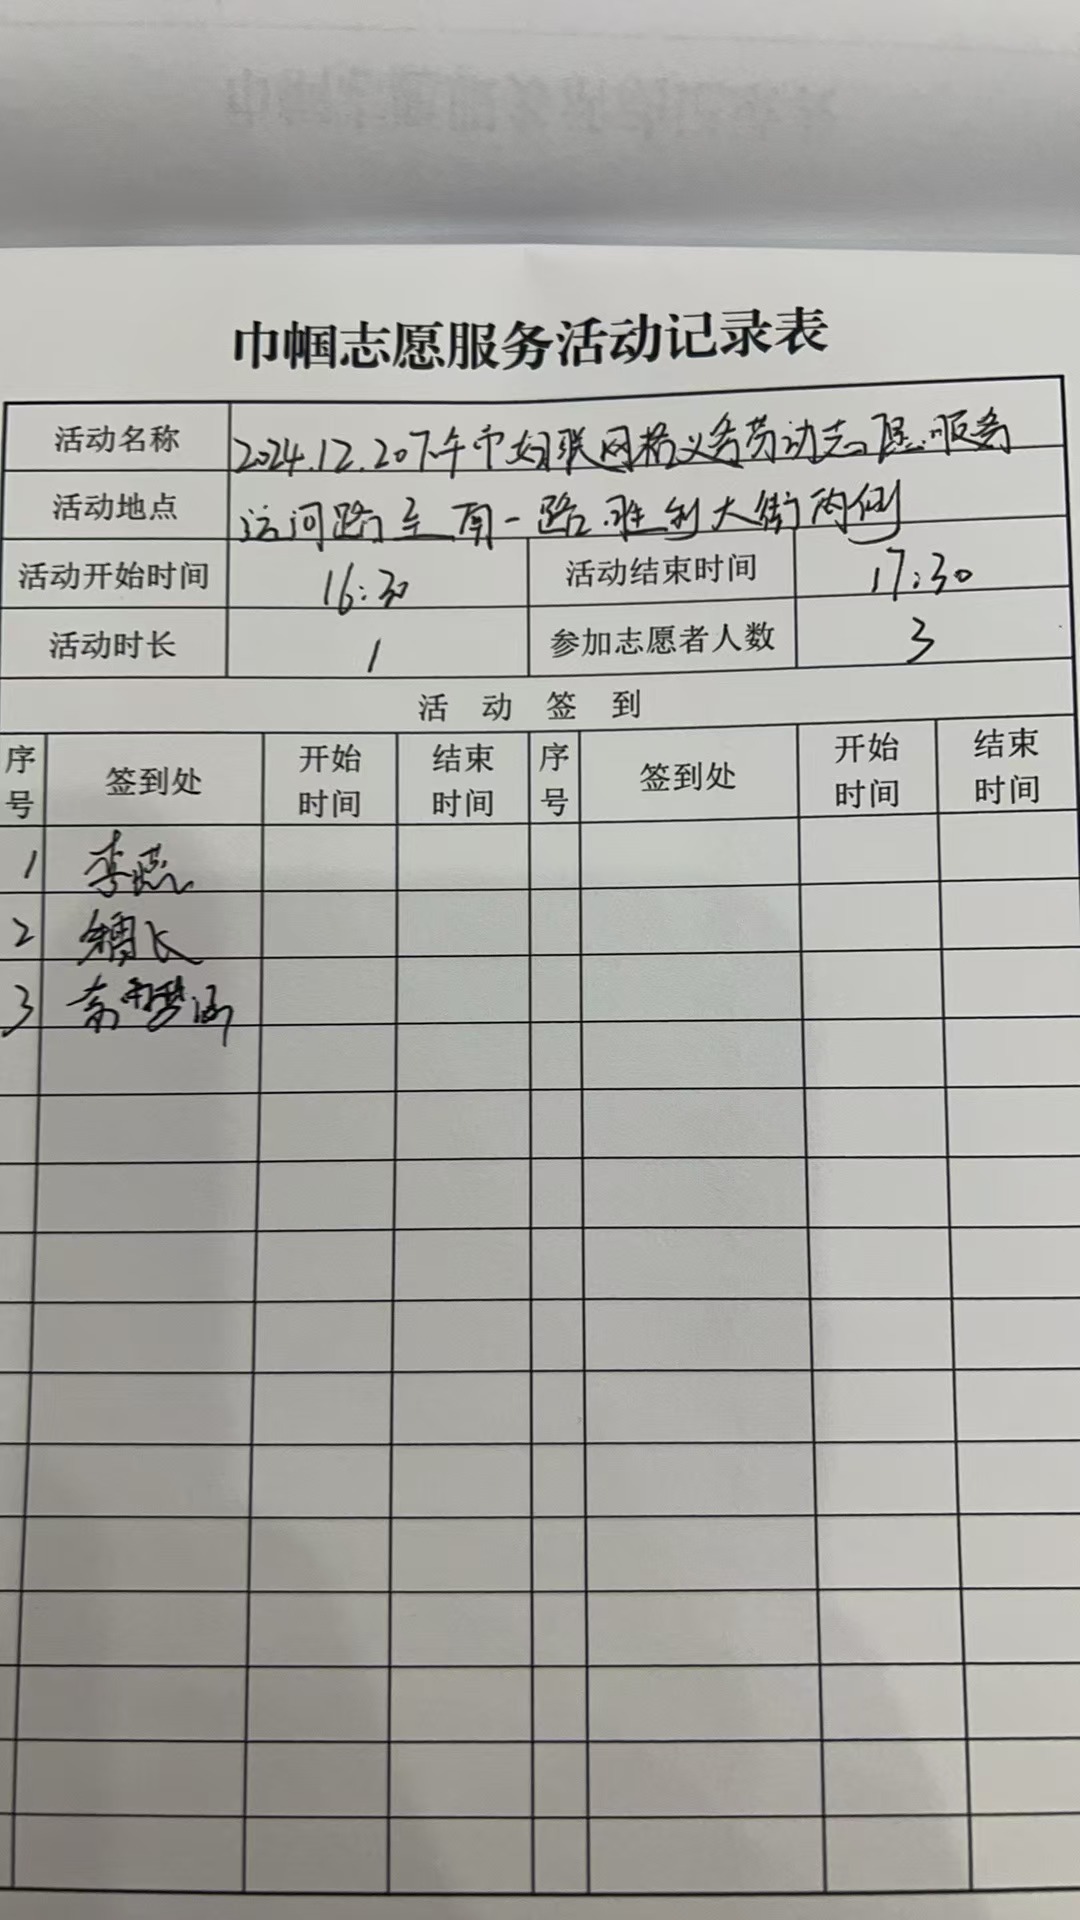 巾帼志愿服务活动记录表
活动名称 2024.12.20下午市妇联网格义务劳动志愿服务
活动地点 运河路至南一路.胜利大街两侧
活动开始时间 16:30 活动结束时间 17:30
活动时长 1 参加志愿者人数 3
活动签到
序号 签到处 开始时间 结束时间 序号 签到处 开始时间 结束时间
1 李燕
2
3 梦涵